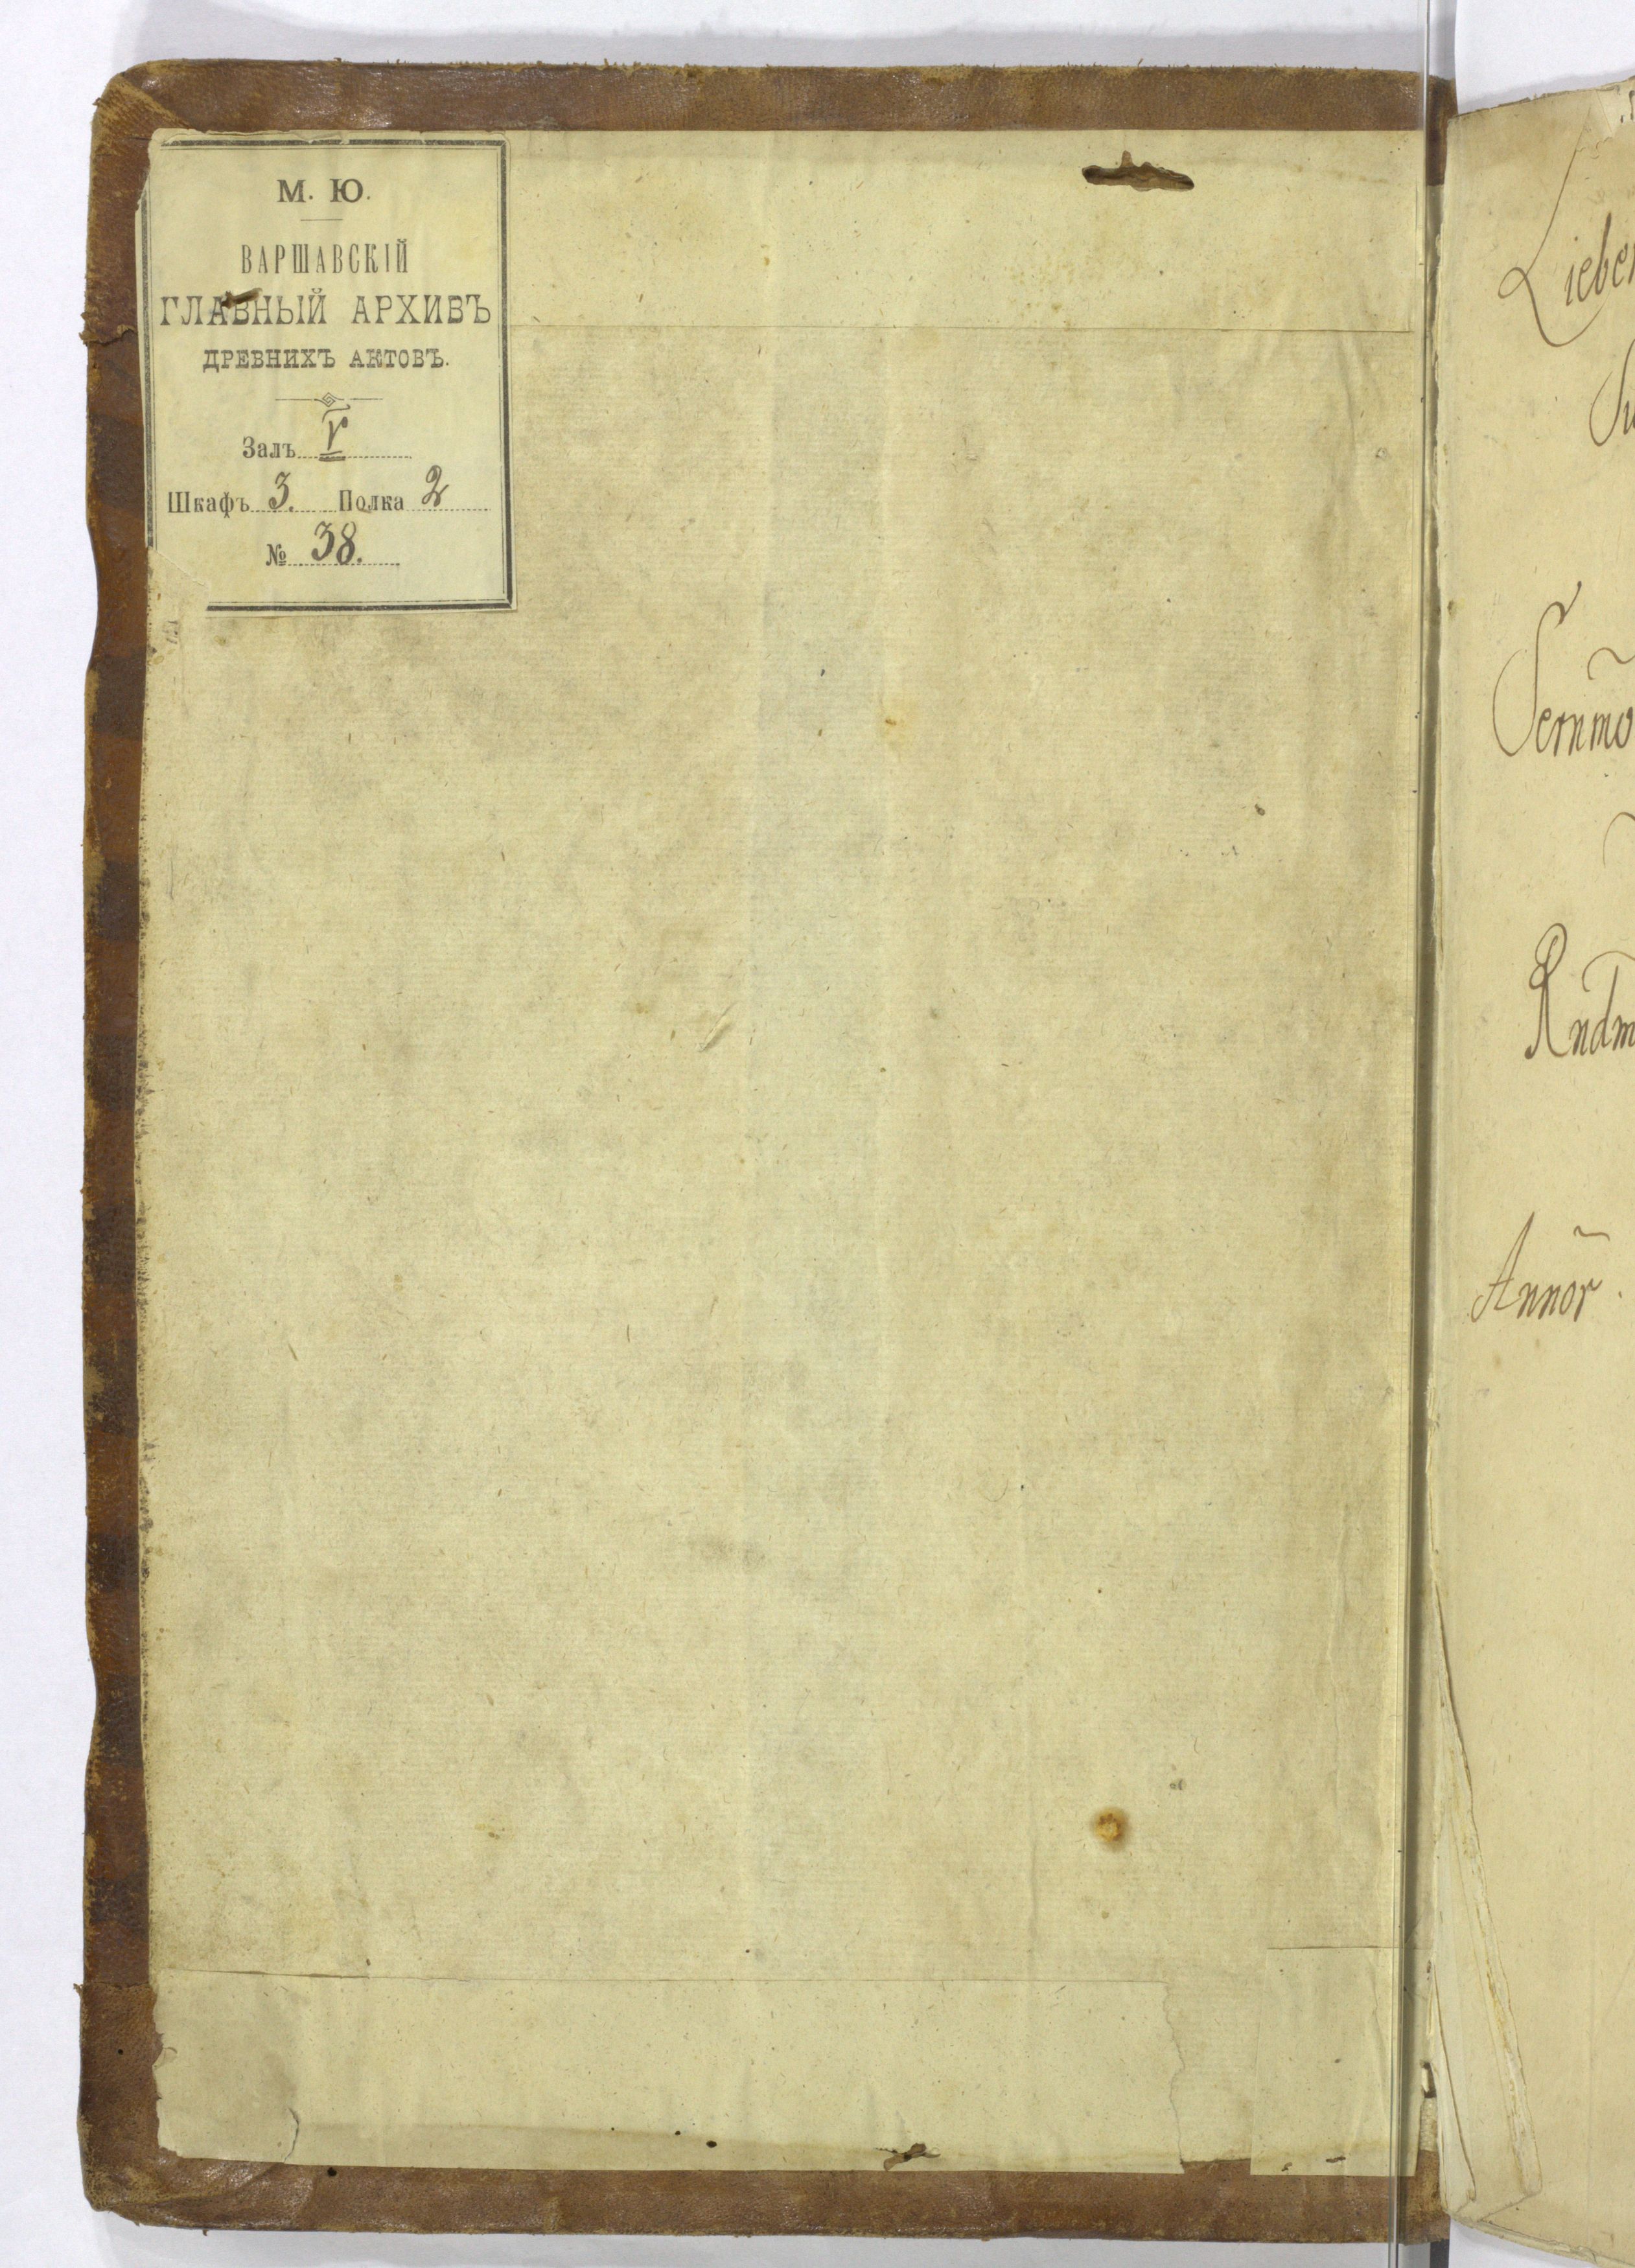 М. Ю.
ВАРШАВСКІЙ
ГЛАВНЫЙ АРХИВЪ
ДРЕВНИХЪ АКТОВЪ.
Залъ V
Шкафъ 3. Полка 2
№ 38.
Lieber
Annor